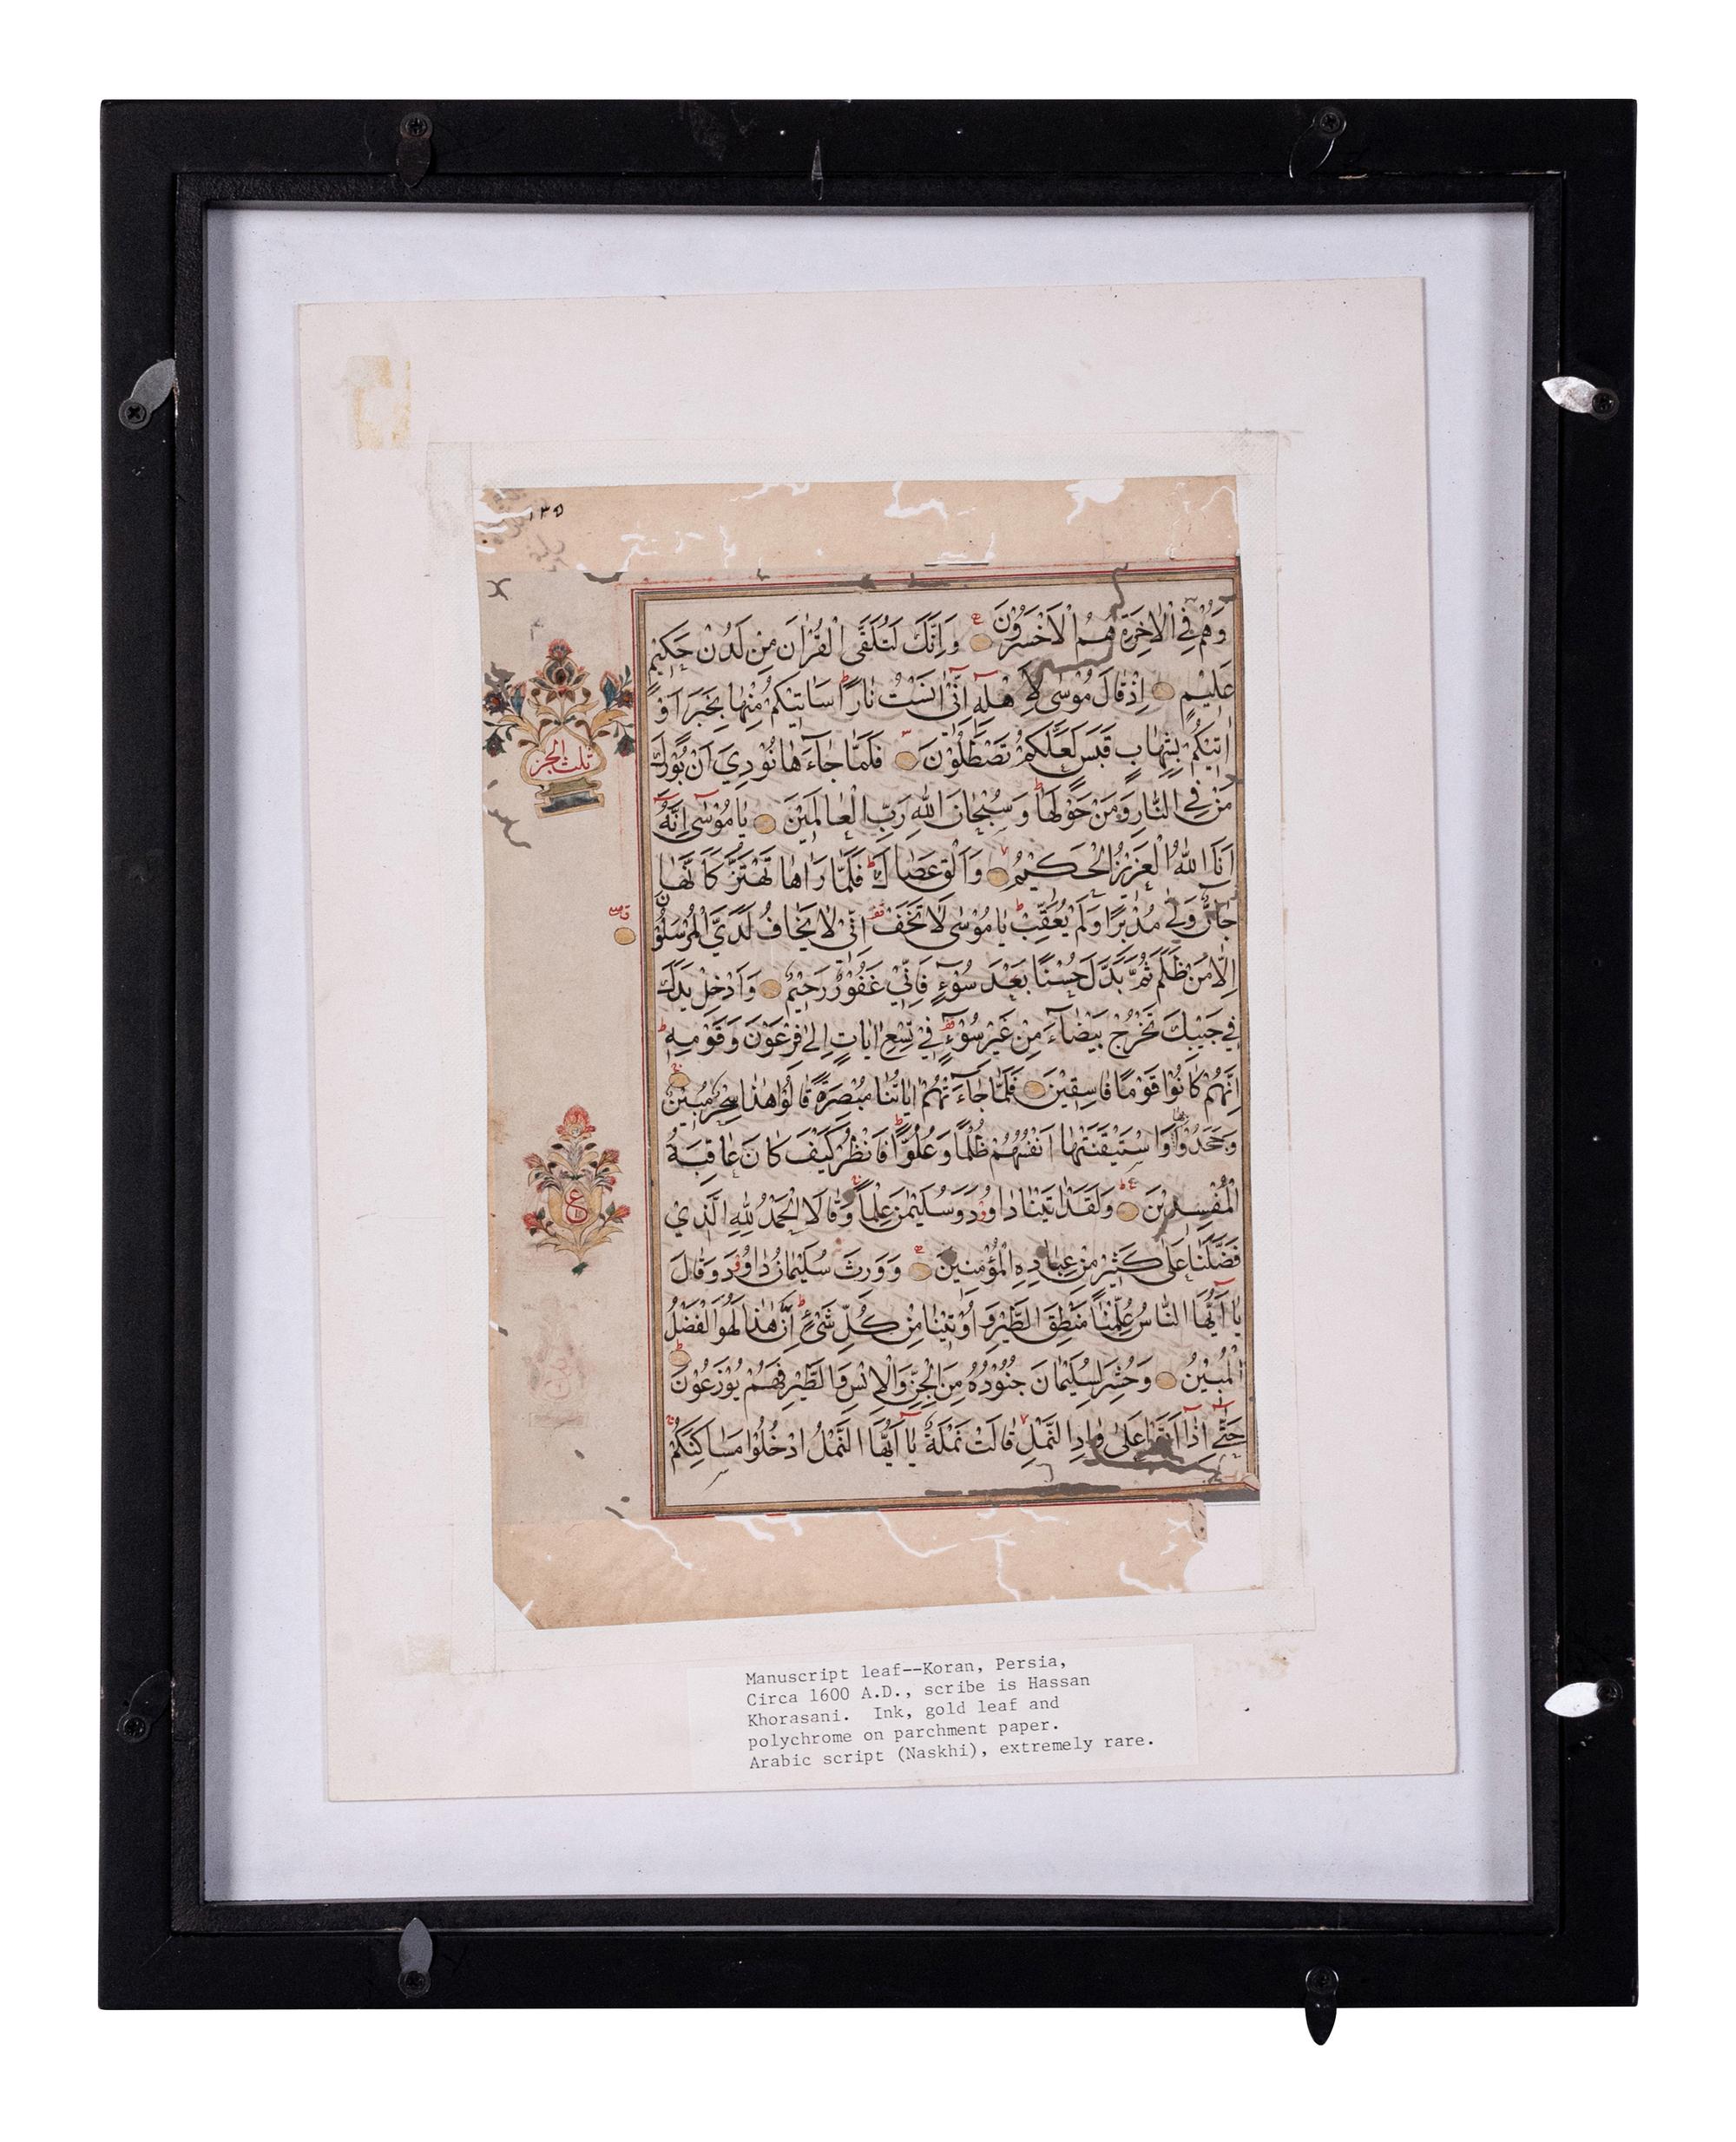 ١٣٥
وَهُمْ فِي الْاٰخِرَةِ هُمُ الْاَخْسَرُونَ وَاِنَّكَ لَتُلَقَّى الْقُرْاٰنَ مِنْ لَدُنْ حَكِيْمٍ
عَلِيْمٍ اِذْ قَالَ مُوْسٰى لِاَهْلِهٖ اِنِّىْ اٰنَسْتُ نَارًا سَاٰتِيْكُمْ مِنْهَا بِخَبَرٍ اَوْ
اٰتِيْكُمْ بِشِهَابٍ قَبَسٍ لَعَلَّكُمْ تَصْطَلُوْنَ فَلَمَّا جَآءَهَا نُوْدِيَ اَنْ بُوْرِكَ
ثلث الجز
مَنْ فِي النَّارِ وَمَنْ حَوْلَهَا وَسُبْحَانَ اللّٰهِ رَبِّ الْعَالَمِيْنَ يَا مُوْسٰى اِنَّهُ
اَنَا اللّٰهُ الْعَزِيْزُ الْحَكِيْمُ وَاَلْقِ عَصَاكَ فَلَمَّا رَاٰهَا تَهْتَزُّ كَاَنَّهَا
جَانٌّ وَلّٰى مُدْبِرًا وَلَمْ يُعَقِّبْ يَا مُوْسٰى لَا تَخَفْ اِنِّىْ لَا يَخَافُ لَدَيَّ الْمُرْسَلُوْنَ
اِلَّا مَنْ ظَلَمَ ثُمَّ بَدَّلَ حُسْنًا بَعْدَ سُوْٓءٍ فَاِنِّيْ غَفُوْرٌ رَحِيْمٌ وَاَدْخِلْ يَدَكَ
فِي جَيْبِكَ تَخْرُجْ بَيْضَآءَ مِنْ غَيْرِ سُوْٓءٍ فِيْ تِسْعِ اٰيَاتٍ اِلٰى فِرْعَوْنَ وَقَوْمِهٖ
اِنَّهُمْ كَانُوْا قَوْمًا فَاسِقِيْنَ فَلَمَّا جَآءَتْهُمْ اٰيَاتُنَا مُبْصِرَةً قَالُوْا هٰذَا سِحْرٌ مُبِيْنٌ
وَجَحَدُوْا بِهَا وَاسْتَيْقَنَتْهَا اَنْفُسُهُمْ ظُلْمًا وَعُلُوًّا فَانْظُرْ كَيْفَ كَانَ عَاقِبَةُ
الْمُفْسِدِيْنَ وَلَقَدْ اٰتَيْنَا دَاوُدَ وَسُلَيْمٰنَ عِلْمًا وَقَالَا الْحَمْدُ لِلّٰهِ الَّذِيْ
ع
فَضَّلَنَا عَلٰى كَثِيْرٍ مِنْ عِبَادِهِ الْمُؤْمِنِيْنَ وَوَرِثَ سُلَيْمَانُ دَاوُدَ وَقَالَ
يَا اَيُّهَا النَّاسُ عُلِّمْنَا مَنْطِقَ الطَّيْرِ وَاُوْتِيْنَا مِنْ كُلِّ شَيْءٍ اِنَّ هٰذَا لَهُوَ الْفَضْلُ
الْمُبِيْنُ وَحُشِرَ لِسُلَيْمَانَ جُنُوْدُهُ مِنَ الْجِنِّ وَالْاِنْسِ وَالطَّيْرِ فَهُمْ يُوْزَعُوْنَ
حَتّٰى اِذَا اَتَوْا عَلٰى وَادِ النَّمْلِ قَالَتْ نَمْلَةٌ يَا اَيُّهَا النَّمْلُ ادْخُلُوْا مَسَاكِنَكُمْ
Manuscript leaf--Koran, Persia,
Circa 1600 A.D., scribe is Hassan
Khorasani. Ink, gold leaf and
polychrome on parchment paper.
Arabic script (Naskhi), extremely rare.